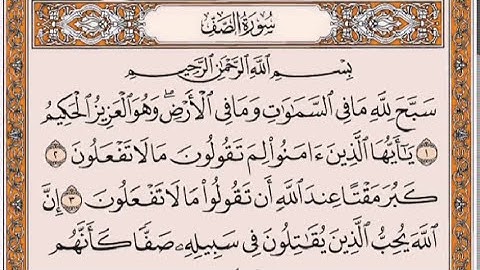 سُورَةُ الصَّفِّ
بِسْمِ اللَّهِ الرَّحْمَٰنِ الرَّحِيمِ
سَبَّحَ لِلَّهِ مَا فِي السَّمَاوَاتِ وَمَا فِي الْأَرْضِ ۖ وَهُوَ الْعَزِيزُ الْحَكِيمُ
١ يَا أَيُّهَا الَّذِينَ ءَامَنُوا لِمَ تَقُولُونَ مَا لَا تَفْعَلُونَ ٢
كَبُرَ مَقْتًا عِندَ اللَّهِ أَن تَقُولُوا مَا لَا تَفْعَلُونَ ٣ إِنَّ
اللَّهَ يُحِبُّ الَّذِينَ يُقَاتِلُونَ فِي سَبِيلِهِ صَفًّا كَأَنَّهُم